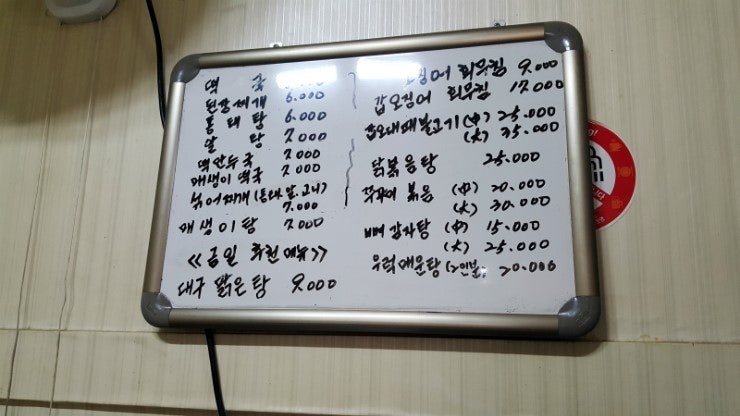 떡 국
된장찌개 6.000
동태탕 6.000
알 탕 7.000
떡만두국 7.000
매생이 떡국 7.000
섞어찌개 (동태.알.고니)
7.000
매생이탕 7.000
<<금일 추천 메뉴>>
대구 맑은탕 9.000
오징어 회무침 9.000
갑오징어 회무침 17.000
갑오대패불고기 (中) 25.000
(大) 35.000
닭볶음탕 25.000
쭈꾸미 볶음 (中) 20.000
(大) 30.000
뼈 감자탕 (中) 15.000
(大) 25.000
우럭매운탕 (2인분) 20.000